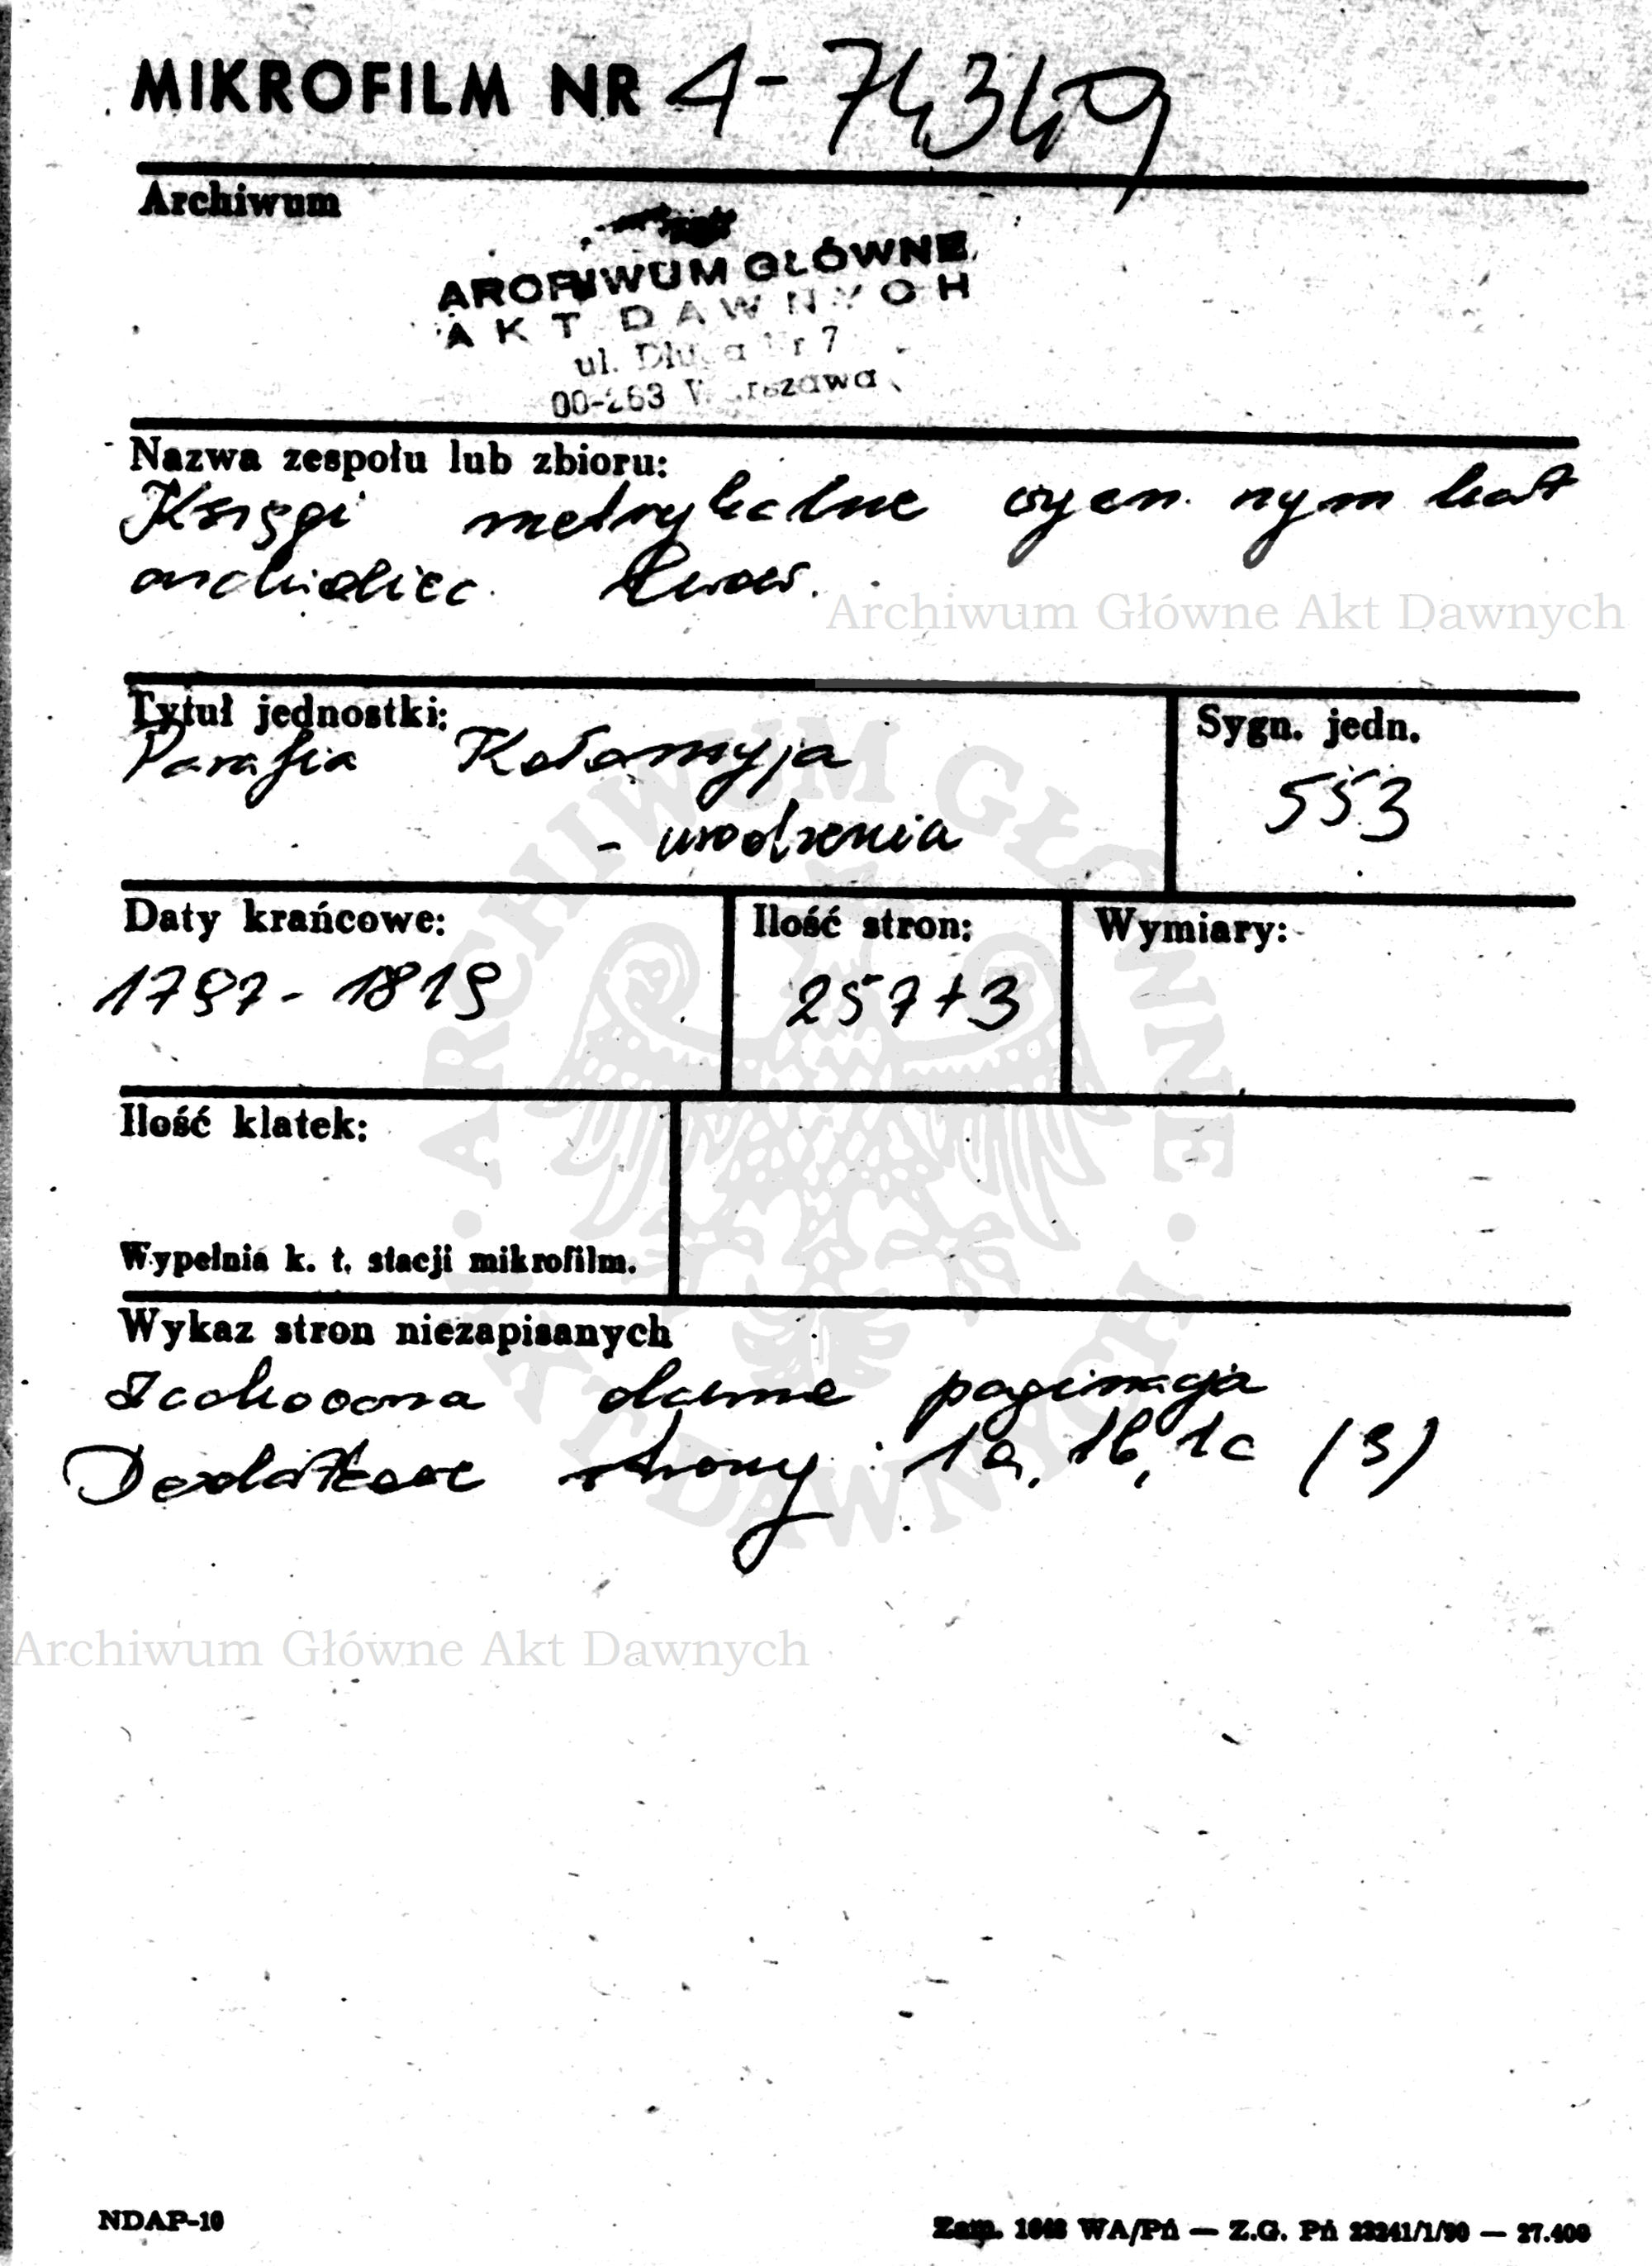 MIKROFILM NR A-74349
Archiwum
ARCHIWUM GŁÓWNE
AKT DAWNYCH
ul. Długa Nr 7
00-263 Warszawa
Nazwa zespołu lub zbioru:
Księgi metrykalne wyzn. rzym kat
archidiec. Lwow.
Archiwum Główne Akt Dawnych
Tytuł jednostki:
Parafia Kołomyja
- urodzenia
Sygn. jedn.
553
Daty krańcowe:
1797 - 1819
Ilość stron:
257+3
Wymiary:
Ilość klatek:
Wypełnia k. t. stacji mikrofilm.
ARCHIWUM GŁÓWNE
AKT DAWNYCH
Wykaz stron niezapisanych
Zachowana dawna paginacja
Dodatkowe strony : 1a, 1b, 1c (3)
Archiwum Główne Akt Dawnych
NDAP-10
Zam. WA/Pń — Z.G. Pń 23241/1/90 — 27.400